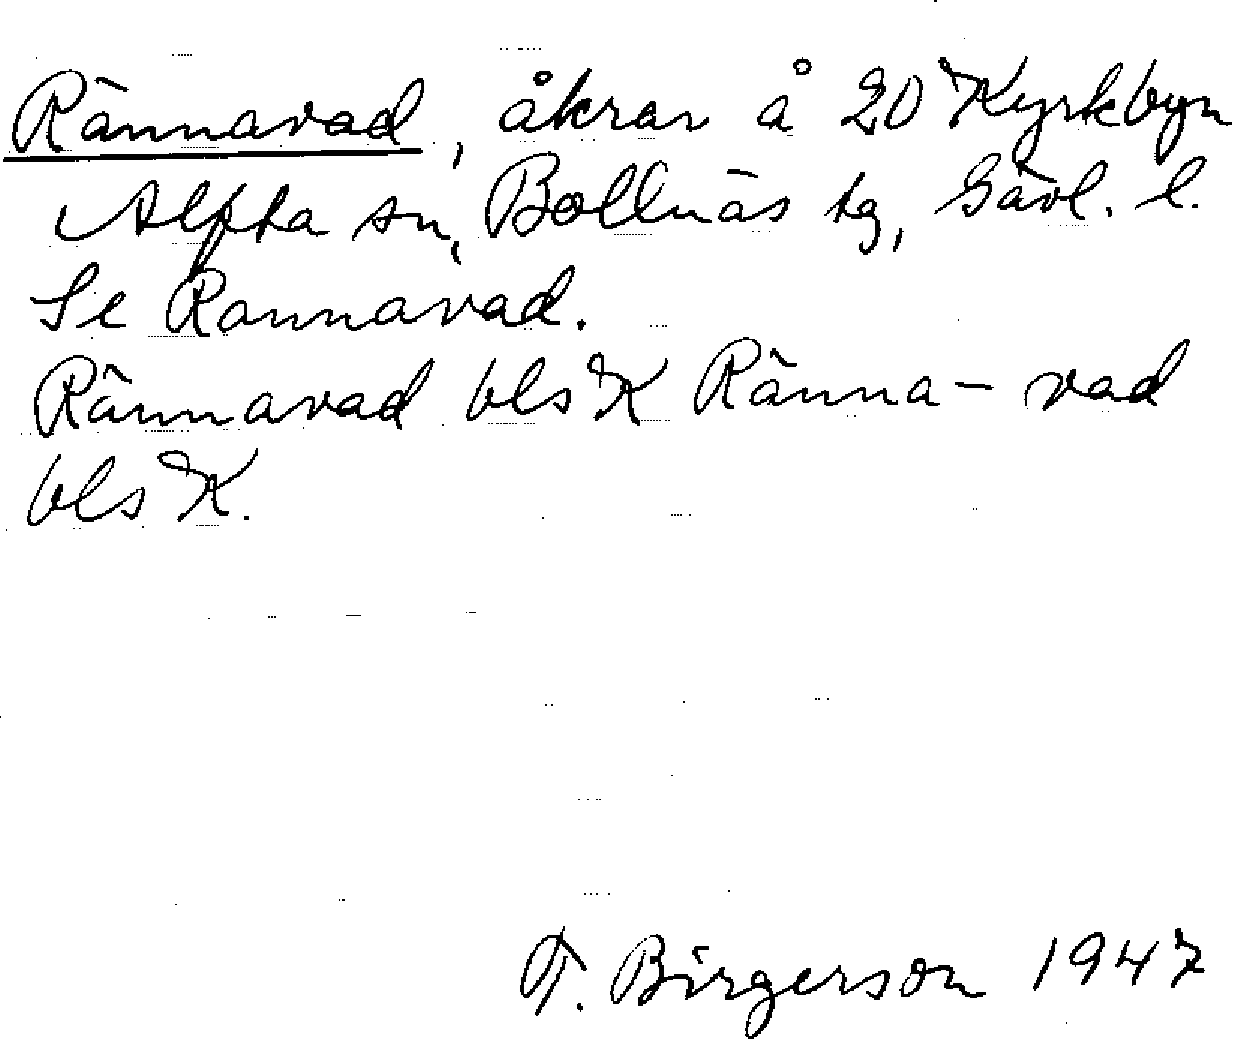 Rännavad, åkrar å 20 Kyrkbyn
Alfta sn, Bollnäs tg, Gävl. l.
Se Rannavad.
Rännavad bls K Ränna- vad
bls K.
T. Birgerson 1947